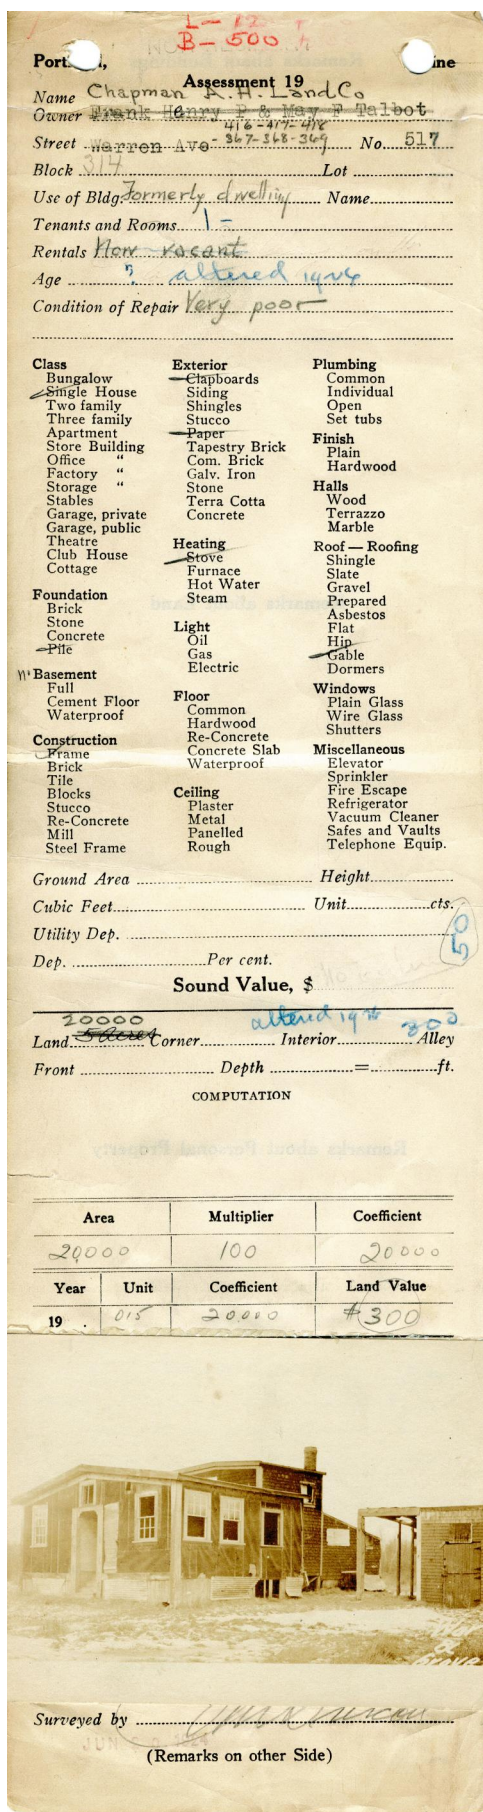 L-12
B-500
Port , ine
Assessment 19
Name Chapman A. H. Land Co
Owner Frank Henry P & May F Talbot
416-417-418
Street Warren Ave -367-368-369 No. 517
Block 314 Lot
Use of Bldg. Formerly dwelling Name
Tenants and Rooms 1-
Rentals Now vacant
Age ? altered 1926
Condition of Repair Very poor
Class
Bungalow
Single House
Two family
Three family
Apartment
Store Building
Office "
Factory "
Storage "
Stables
Garage, private
Garage, public
Theatre
Club House
Cottage
Foundation
Brick
Stone
Concrete
Pile
no Basement
Full
Cement Floor
Waterproof
Construction
Frame
Brick
Tile
Blocks
Stucco
Re-Concrete
Mill
Steel Frame
Exterior
Clapboards
Siding
Shingles
Stucco
Paper
Tapestry Brick
Com. Brick
Galv. Iron
Stone
Terra Cotta
Concrete
Heating
Stove
Furnace
Hot Water
Steam
Light
Oil
Gas
Electric
Floor
Common
Hardwood
Re-Concrete
Concrete Slab
Waterproof
Ceiling
Plaster
Metal
Panelled
Rough
Plumbing
Common
Individual
Open
Set tubs
Finish
Plain
Hardwood
Halls
Wood
Terrazzo
Marble
Roof — Roofing
Shingle
Slate
Gravel
Prepared
Asbestos
Flat
Hip
Gable
Dormers
Windows
Plain Glass
Wire Glass
Shutters
Miscellaneous
Elevator
Sprinkler
Fire Escape
Refrigerator
Vacuum Cleaner
Safes and Vaults
Telephone Equip.
Ground Area Height
Cubic Feet Unit cts.
Utility Dep. 50
Dep. Per cent.
Sound Value, $
20000 altered 1926 300
Land 5 acres Corner Interior Alley
Front Depth = ft.
COMPUTATION
Area Multiplier Coefficient
20,000 100 20000
Year Unit Coefficient Land Value
19 . 015 20000 $300
Surveyed by
JUN
(Remarks on other Side)